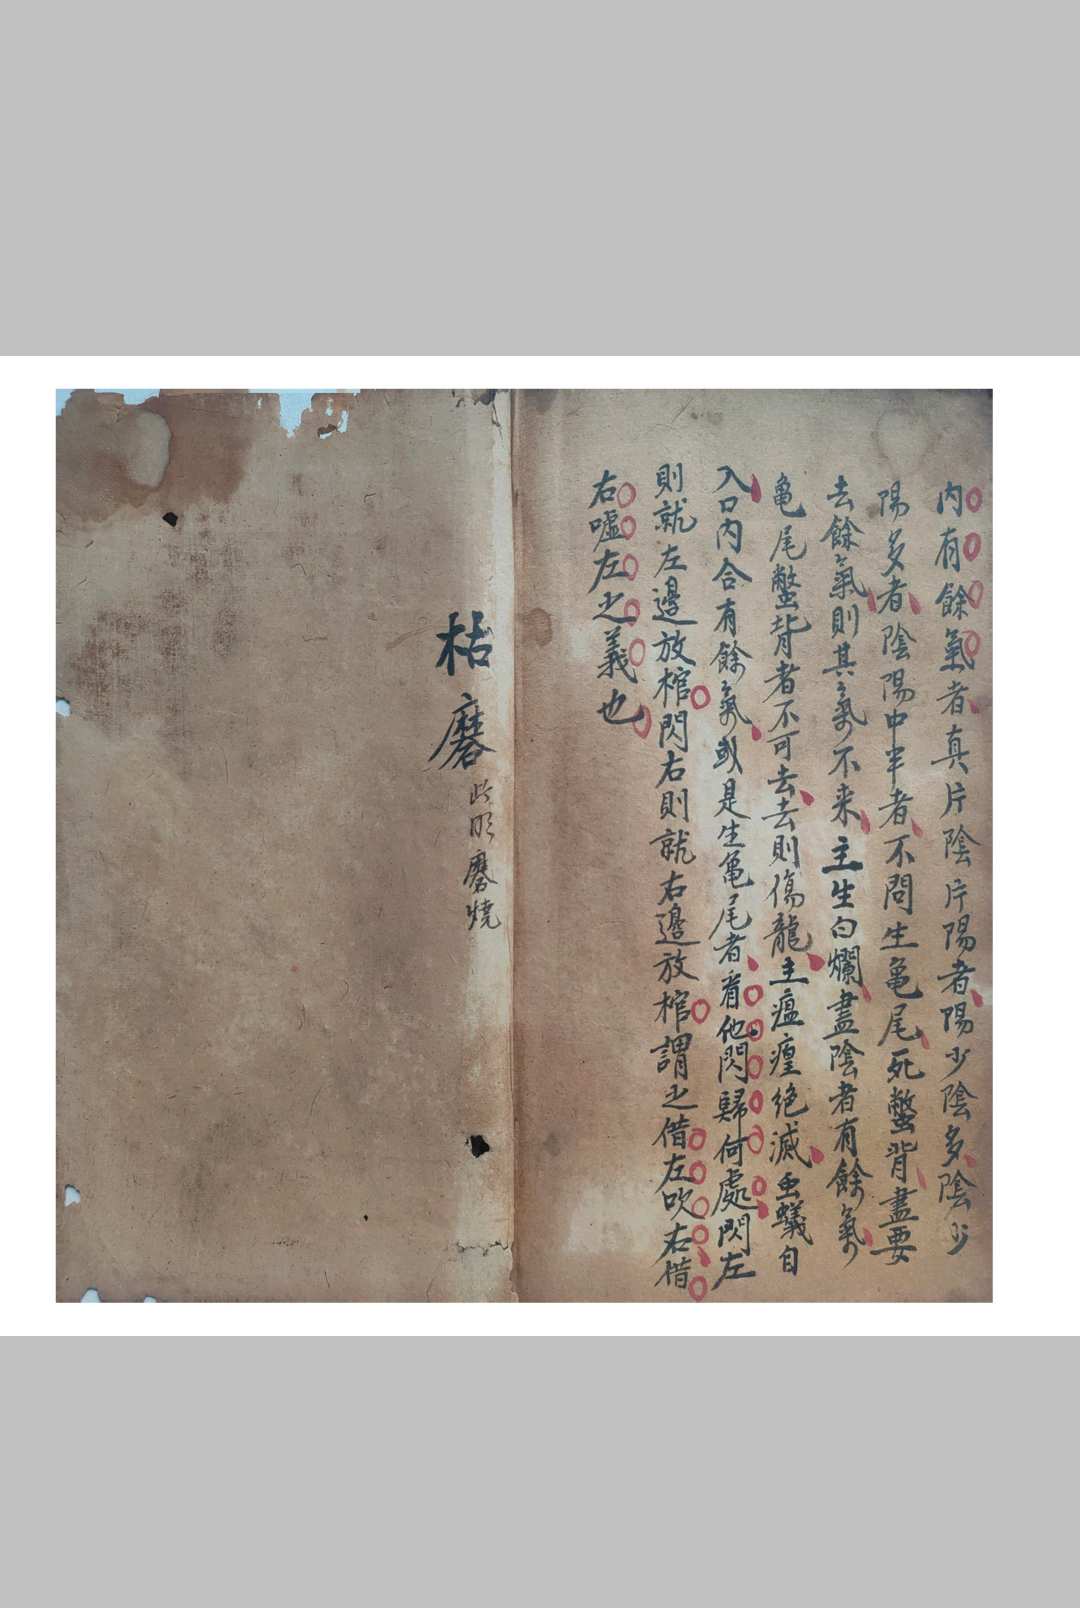 内有餘氣者真片陰片陽者陽少陰多陰少
陽多者陰陽中半者不問生亀尾死鱉背盡要
去餘氣則其氣不来主生白爛盡陰者有餘氣
亀尾鱉背者不可去去則傷龍主瘟㾮絶滅虫蟻自
入口内合有餘氣或是生亀尾者看他閃歸何處閃左
則就左邉放棺閃右則就右邉放棺謂之借左吹右借
右噓左之義也
枯
磨
此 磨燒